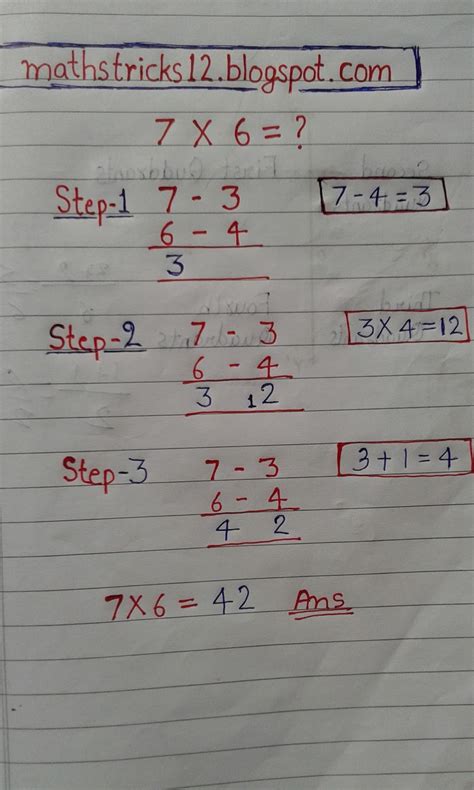 mathstricks12.blogspot.com
7 X 6 = ?
Step-1 7 - 3 7 - 4 = 3
6 - 4
3
Step-2 7 - 3 3 X 4 = 12
6 - 4
3 12
Step-3 7 - 3 3 + 1 = 4
6 - 4
4 2
7X6 = 42 Ans